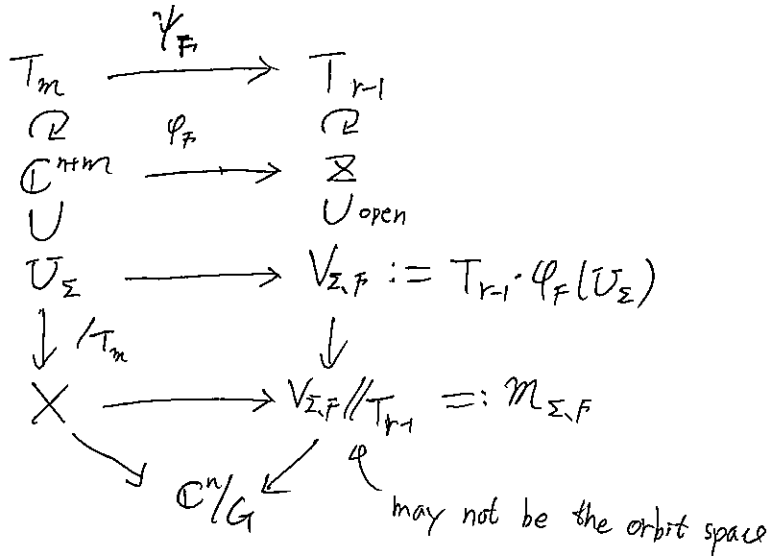 ψ_F
T_m ⟶ T_{r-1}
↻ φ_F ↻
ℂ^{n+m} ⟶ Z
∪ ∪ open
U_Σ ⟶ V_{Σ,F} := T_{r-1} · φ_F(U_Σ)
↓ /T_m ↓
X ⟶ V_{Σ,F} // T_{r-1} =: M_{Σ,F}
ℂ^n/G
may not be the orbit space